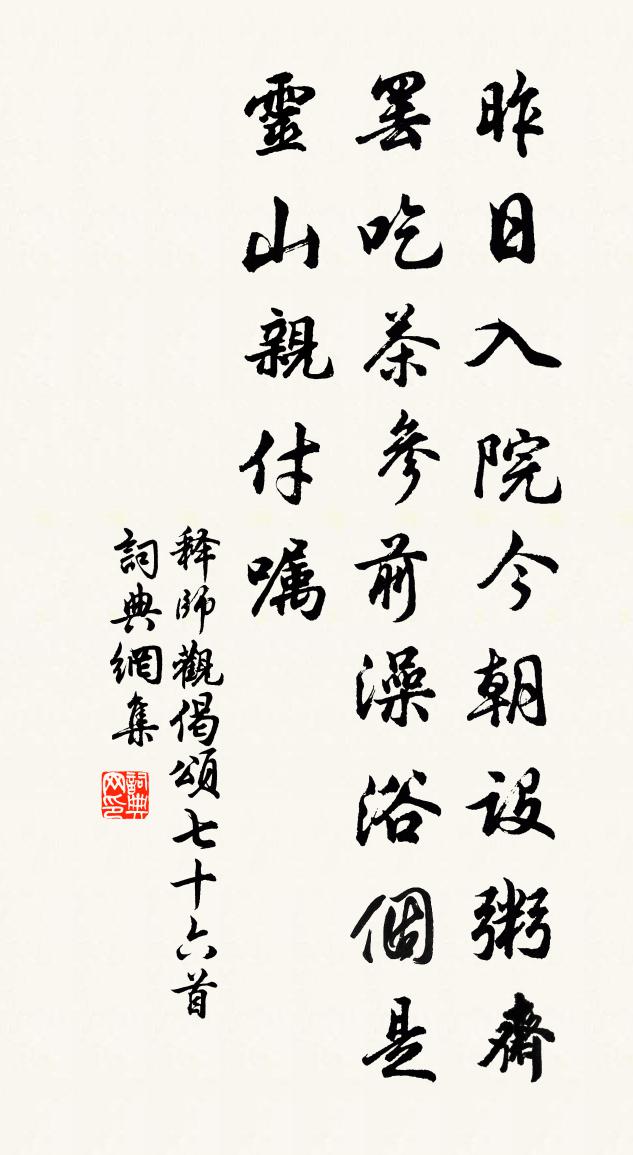 昨日入院今朝設粥齋
罷吃茶參前澡浴個是
靈山親付嘱
释師觀偈頌七十六首
詞典網集
詞典网印